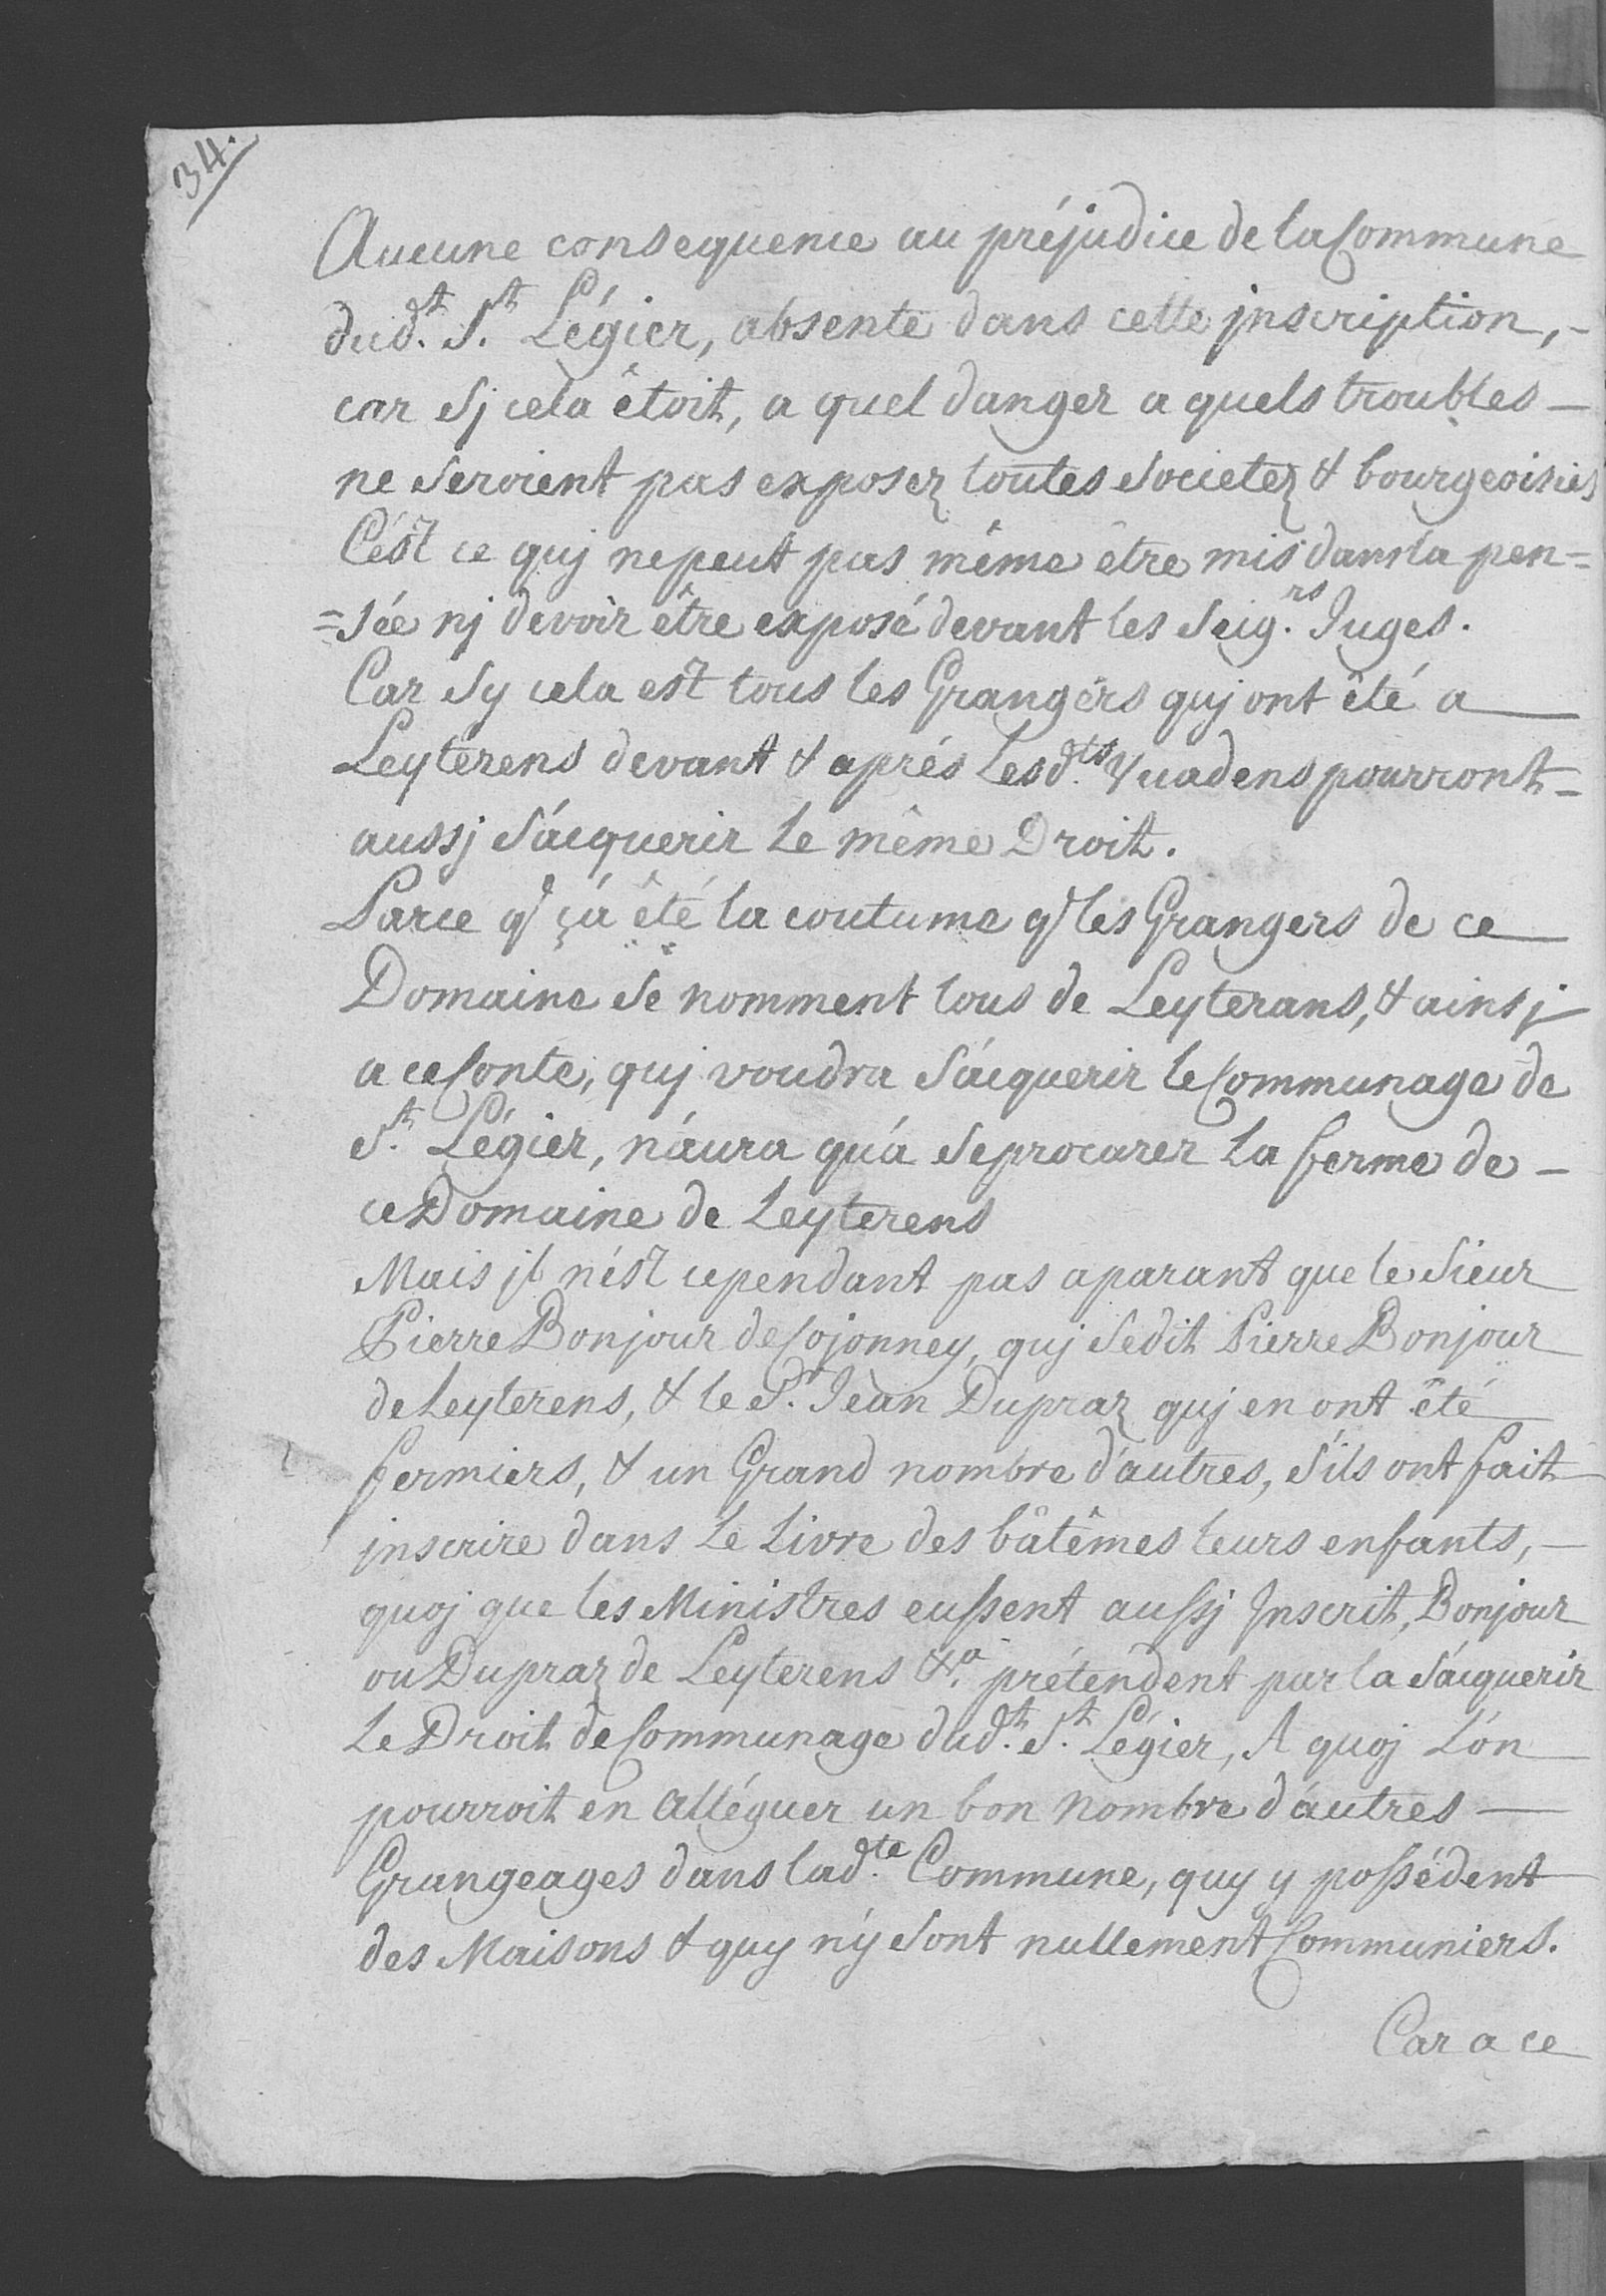 34.
Aucune consequence au préjudice de la Commune
dud.t S.t Légier, absente dans cette jnscription, -
car sj cela êtoit, a quel danger a quels troubles -
ne seroient pas exposez toutes societez & bourgeoisies
C'ést ce quj ne peut pas même être mis dans la pen=
=sée nj devoir être exposé devant les Seig.rs Juges.
Car sy cela est tous les Grangers quj ont êté a
Leyterens devant & aprés lesd.ts Vuadens pourront=
aussj s'acquerir le même Droit.
Parce q' ç'a êté la coutume q' les Grangers de ce
Domaine se nomment tous de Leyterans, & ainsj
a ce Conte, quj voudra s'acquerir le Communage de
S.t Légier, n'aura qu'a se procurer la ferme de -
ce Domaine de Leyterens
Mais jl n'ést cependant pas aparant que le Sieur
Pierre Bonjour de Cojonney, quj se dit Pierre Bonjour
de Leyterens, & le S.r Jean Dupraz quj en ont êté
fermiers, & un Grand nombre d'autres, s'ils ont fait
jnscrire dans le Livre des bâtêmes leurs enfants, -
quoj que les Ministres eussent aussj Jnscrit, Bonjour
ou Dupraz de Leyterens &.a prétendent par la s'acquerir
Le Droit de Communage dud.t S.t Légier, A quoj L'on
pourroit en alléguer un bon nombre d'autres -
Grangeages dans lad.te Commune, quy y possédent
des Maisons & quy n'y sont nullement Communiers.
Car a ce